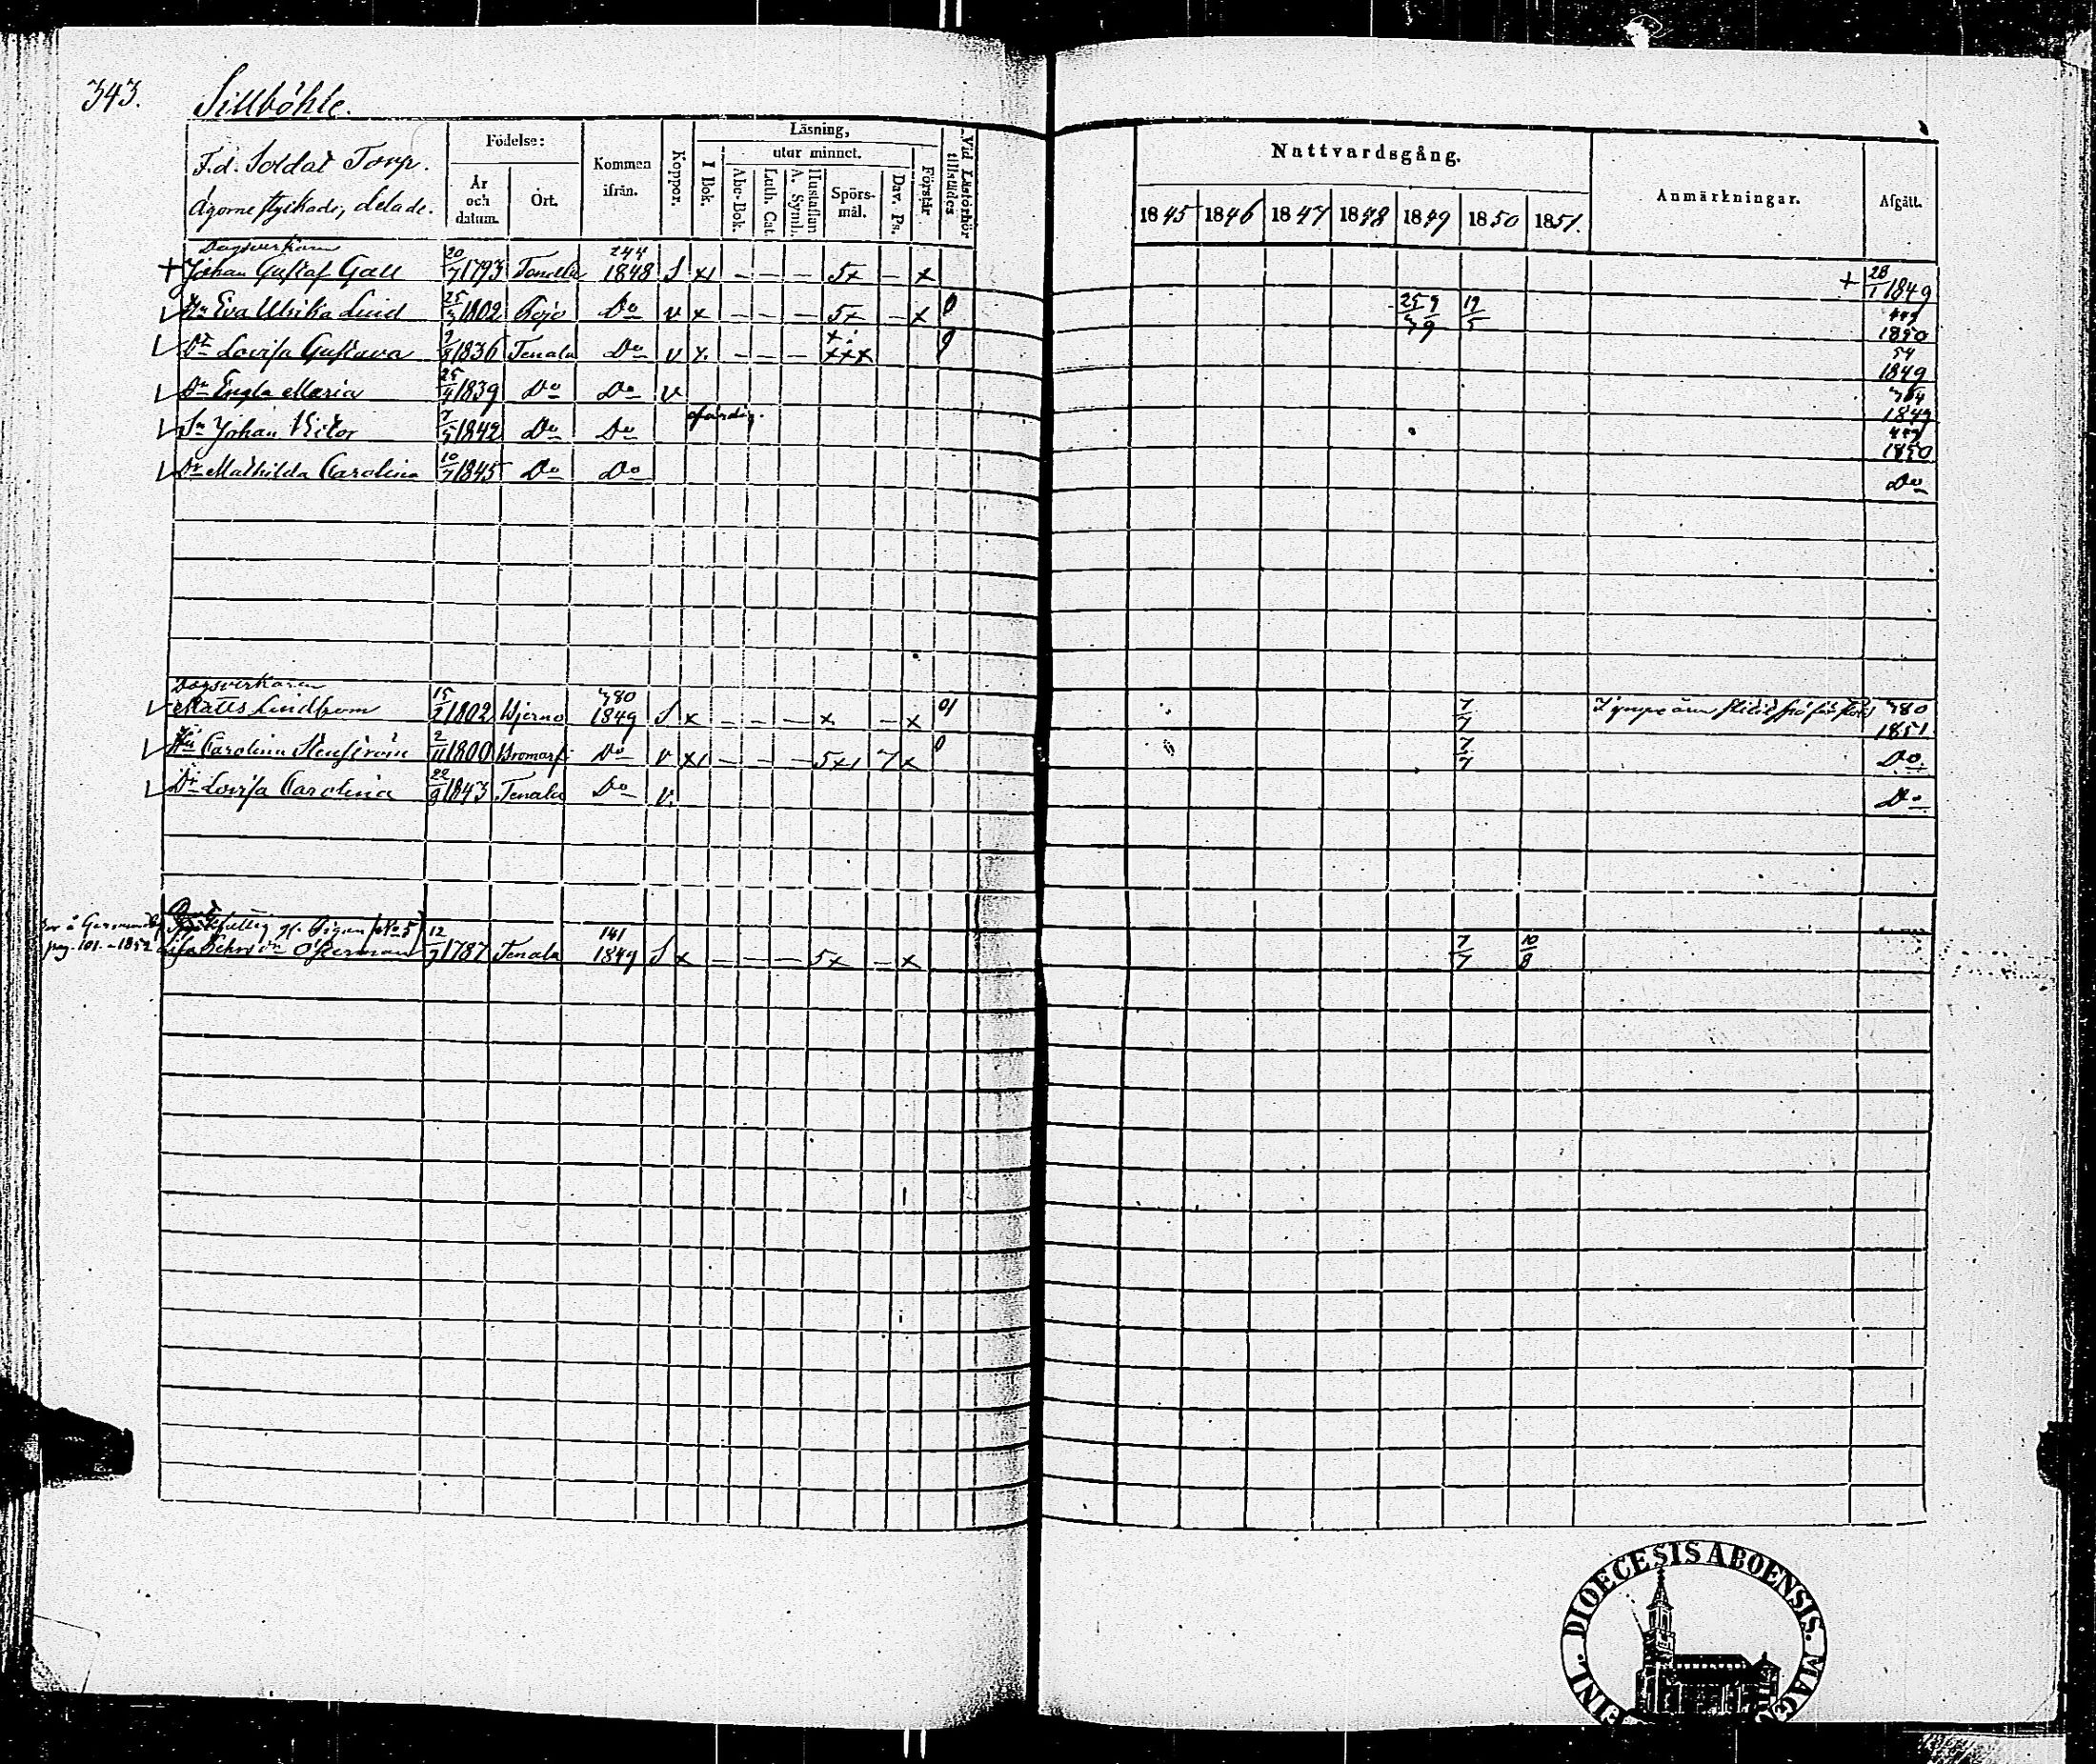 343. Sillböhle.
F.d. Soldat Torp.
Ägorne styckade, delade.
Födelse:
År och datum.
Ort.
Kommen ifrån.
Koppor.
Läsning,
I Bok.
utur minnet.
Abc-Bok.
Luth. Cat.
A. Symb.
Hustaflan
Spörsmål.
Dav. Ps.
Förstår
Vid Läsförhör tillstädes
Nattvardsgång.
1845 1846 1847 1848 1849 1850 1851.
Anmärkningar.
Afgått.
Dagsverkaren
+ Johan Gustaf Gall 20/7 1793 Tenala 244 1848 S x1 – – – 5x – x + 28/1 1849
Hu Eva Ulrika Lind 25/3 1802 Pojo Do v x – – – 5x – x 19/5 1850
Dr Lovisa Gustava 9/8 1836 Tenala Do v x – – – xxx 54 1849
Dr Engla Maria 25/4 1839 Do Do v 1849
Sn Johan Victor 7/5 1842 Do Do ofärdig. 1850
Dr Mathilda Carolina 10/7 1845 Do Do Do
Dagsverkaren
Matts Lindbom 15/2 1802 Bjerno 380 1849 S x – – – x – x 7/7 380 1851
Hu Carolina Stenström 2/11 1800 Bromarf Do v x1 – – – 5x1 7 x 7/7 Do
Dr Lovisa Carolina 22/9 1843 Tenala Do v. Do
pag. 101. – 1852
Pigan No 5
Lisa Ökerman 12/9 1787 Tenala 141 1849 S x – – – 5x – x 7/7 10/8
DIOECESIS ABOENSIS.